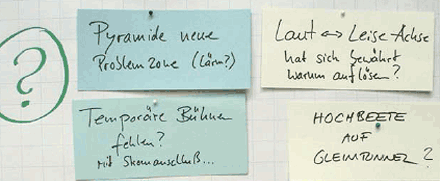 ?
Pyramide neue
Problemzone (Lärm?)
Laut ↔ Leise-Achse
hat sich bewährt
warum auflösen?
Temporäre Bühnen
fehlen?
mit Stromanschluß...
HOCHBEETE
AUF
GLEIMTUNNEL?